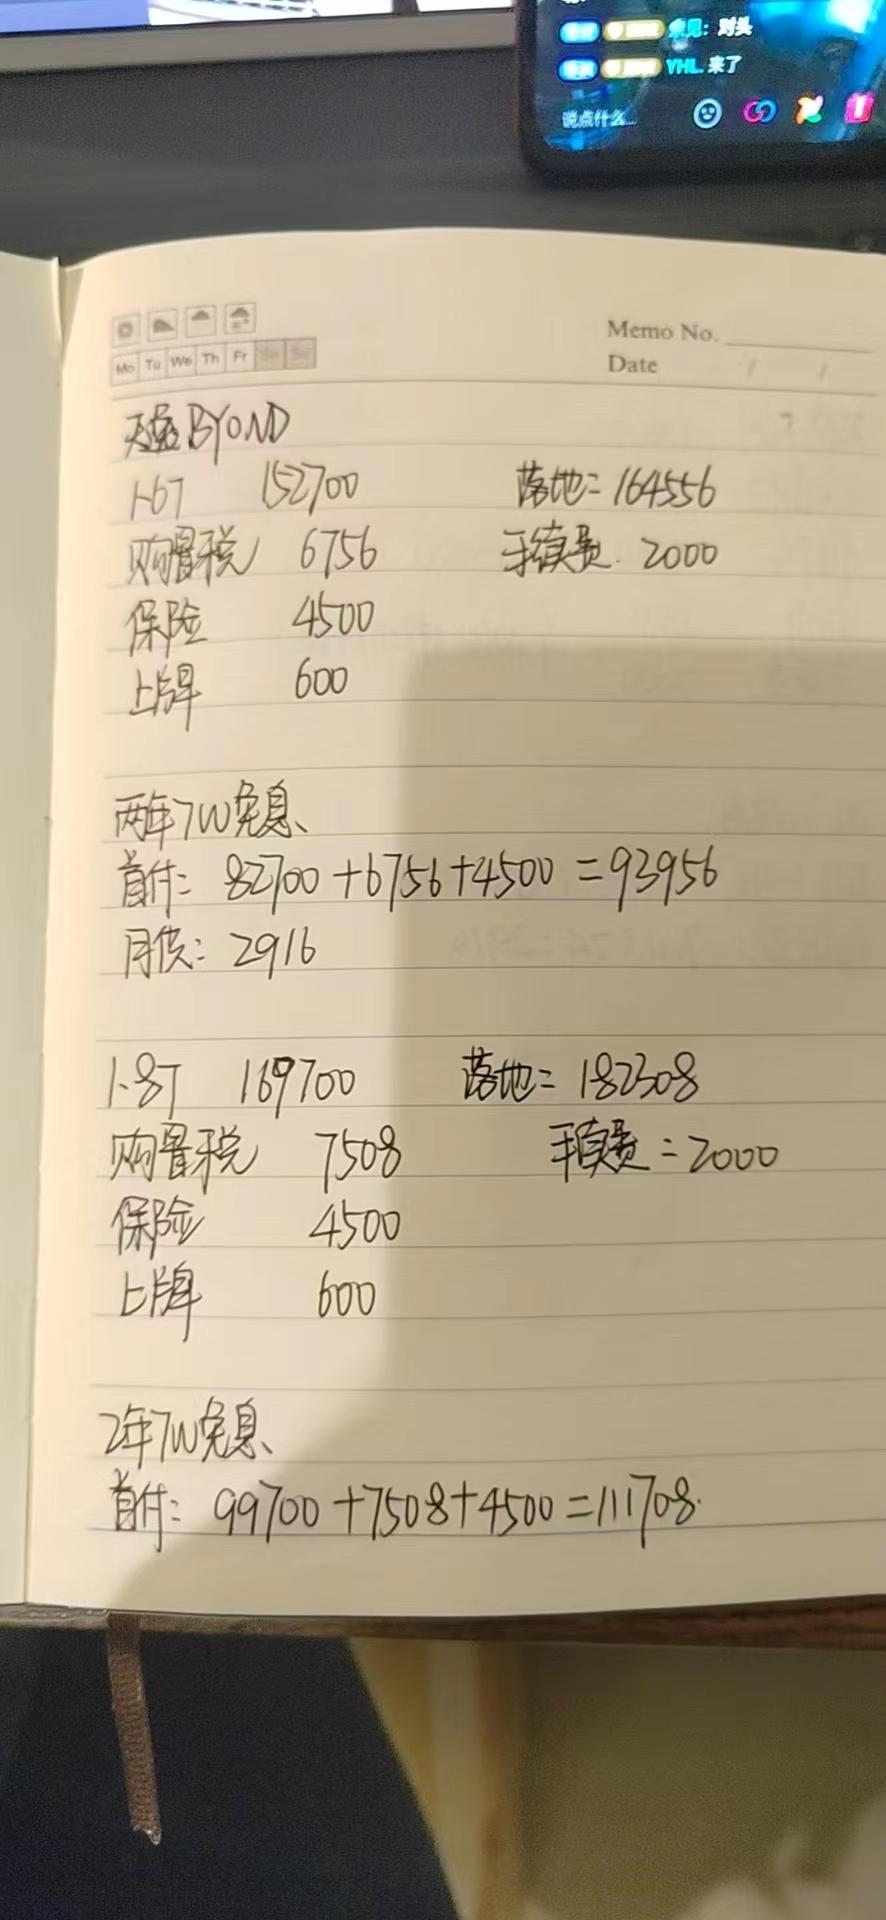 见：对头
YHL 来了
说点什么...
Memo No.
Mo Tu We Th Fr Sa Su
Date / /
天籁BYOND
1.6T 152700 落地=164556
购置税 6756 手续费. 2000
保险 4500
上牌 600
两年7W免息、
首付: 82700+6756+4500=93956
月供: 2916
1.8T 169700 落地= 182308
购置税 7508 手续费=2000
保险 4500
上牌 600
2年7W免息、
首付: 99700+7508+4500=111708.